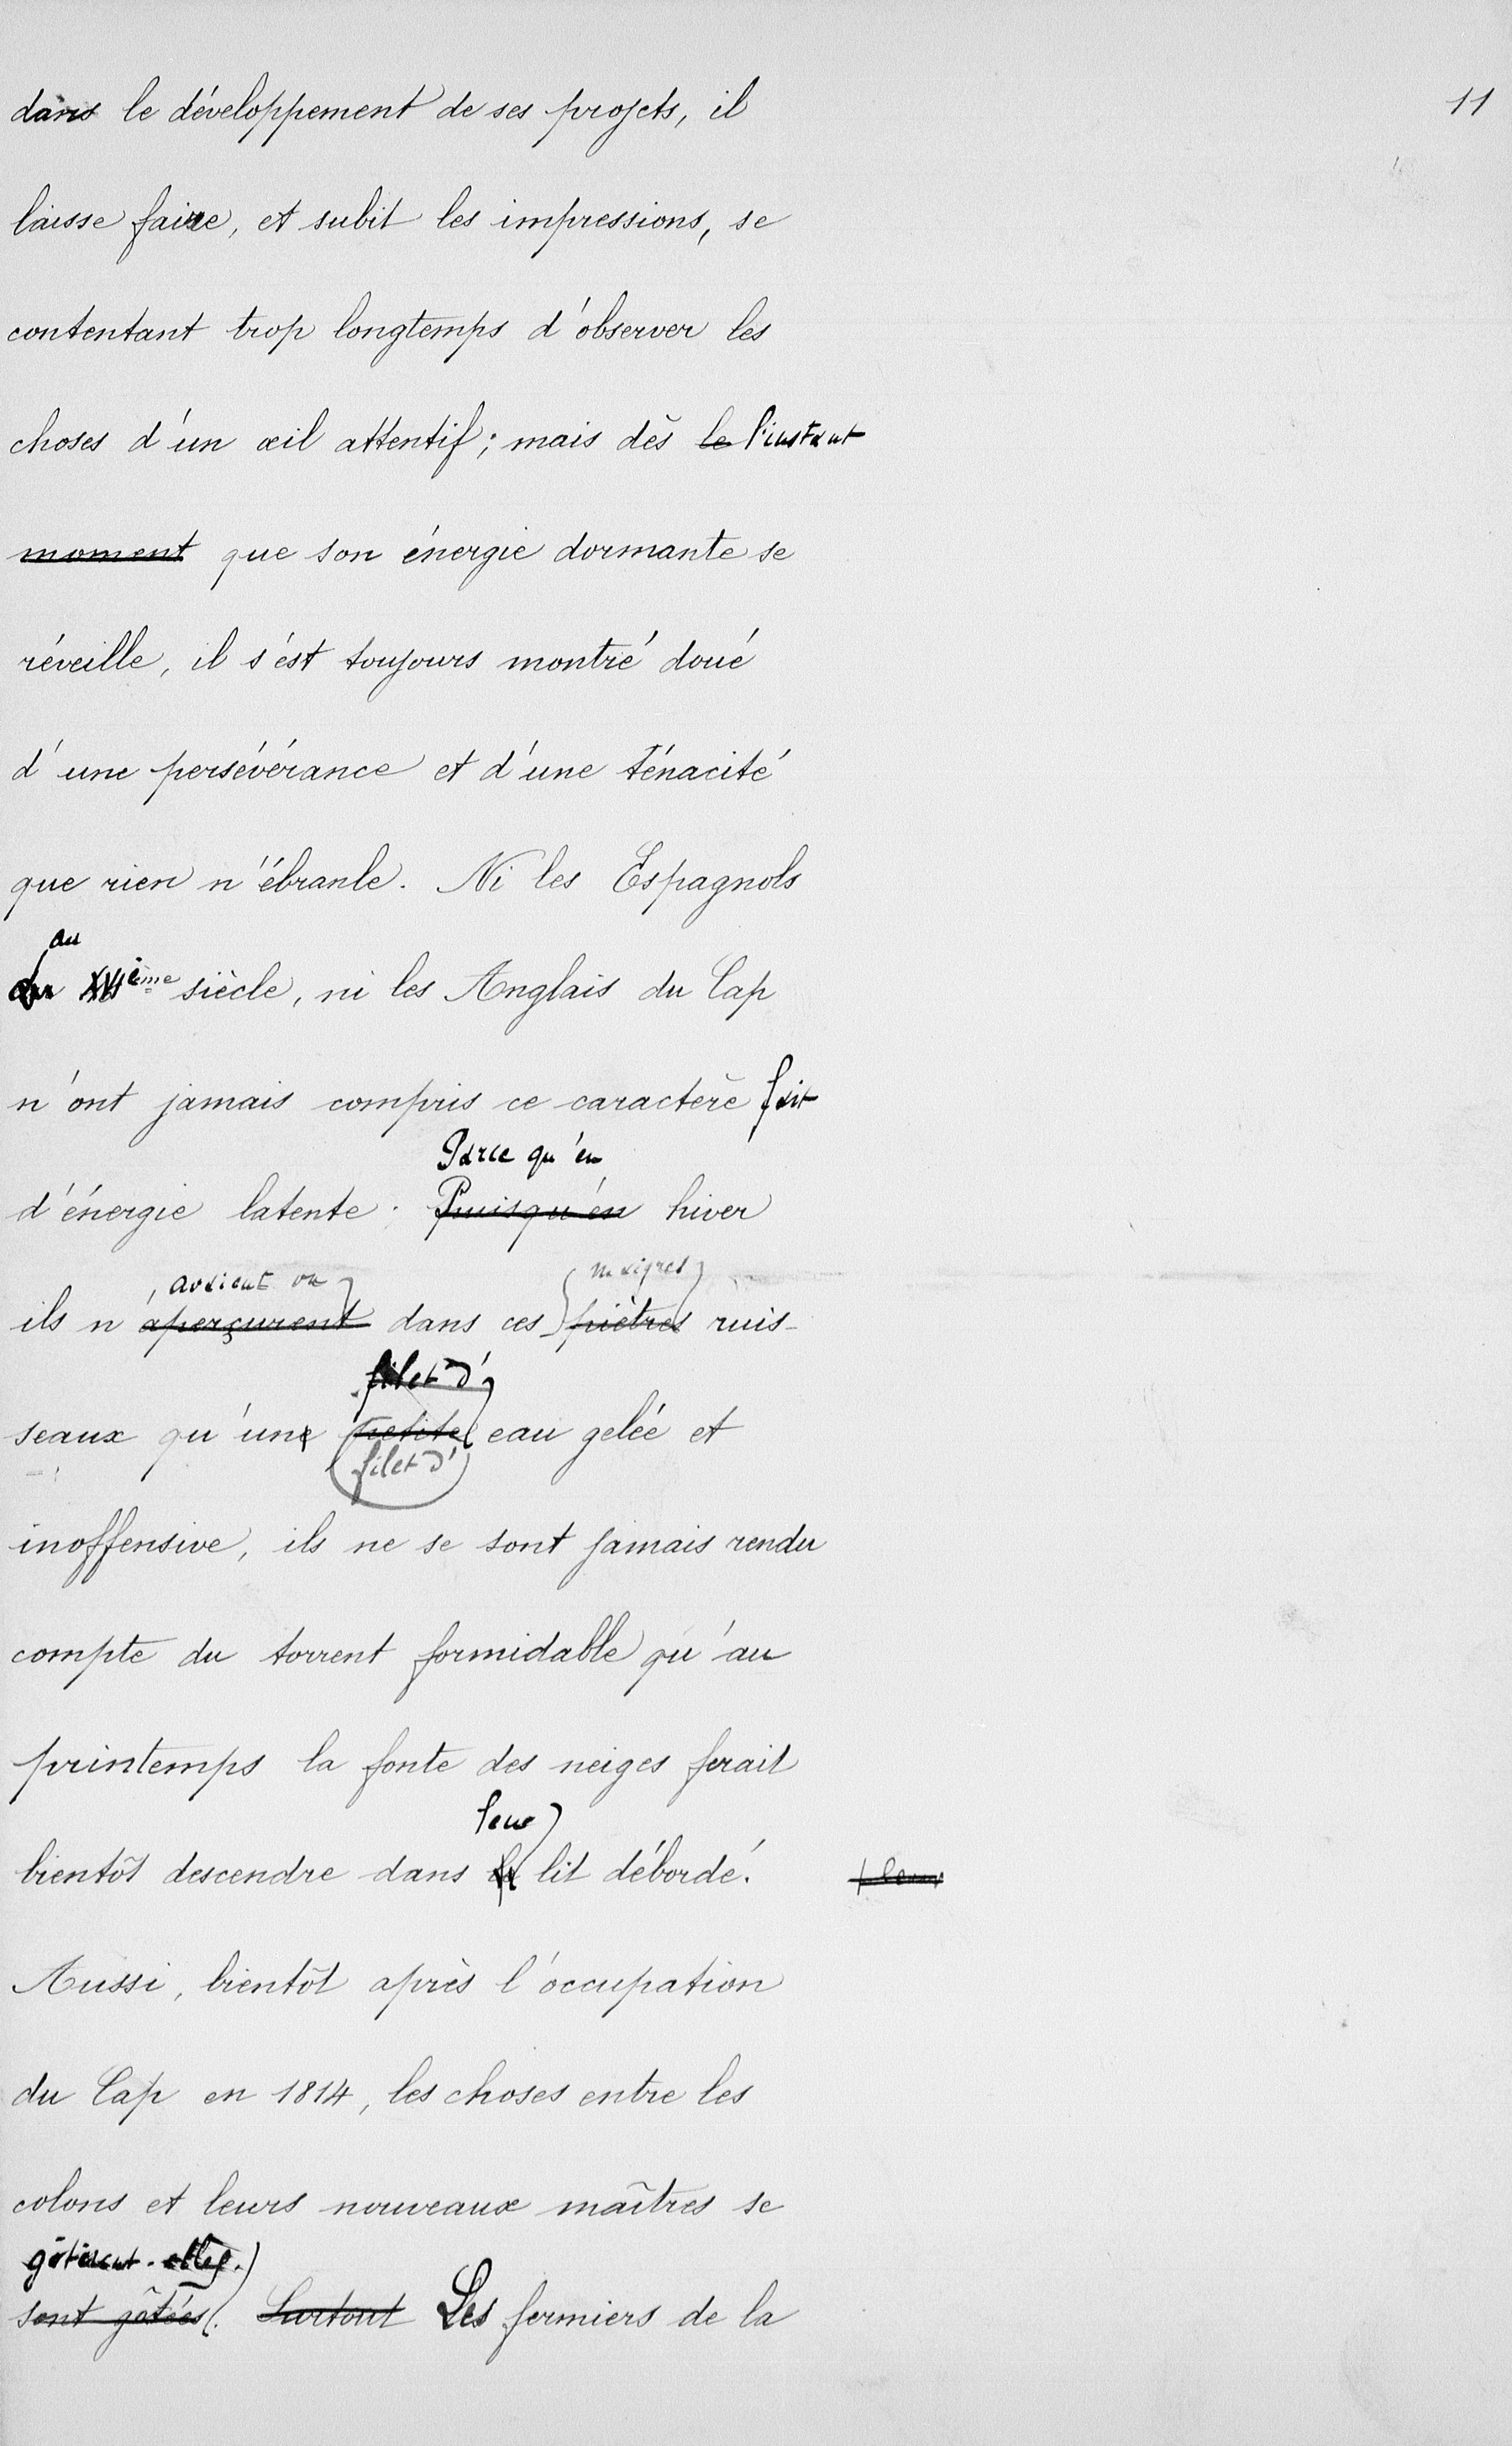 11
dans le développement de ses projets, il
laisse faire, et subit les impressions, se
contentant trop longtemps d'observer les
choses d'un œil attentif; mais dès le l'instant
moment que son énergie dormante se
réveille, il s'est toujours montré doué
d'une persévérance et d'une ténacité
que rien n'ébranle. Ni les Espagnols
au
du XVIième siècle, ni les Anglais du Cap
n'ont jamais compris ce caractère fait
Parce qu'en
d'énergie latente. Puisqu'en hiver
avaient vu maigres
ils n'aperçurent dans ces piètres ruis-
filet d'
seaux qu'une petite eau gelée et
filet d'
inoffensive, ils ne se sont jamais rendu
compte du torrent formidable qu'au
printemps la fonte des neiges ferait
leur
bientôt descendre dans le lit débordé. leur
Aussi, bientôt après l'occupation
du Cap en 1814, les choses entre les
colons et leurs nouveaux maîtres se
gâtèrent-elles.
sont gâtées. Surtout Les fermiers de la